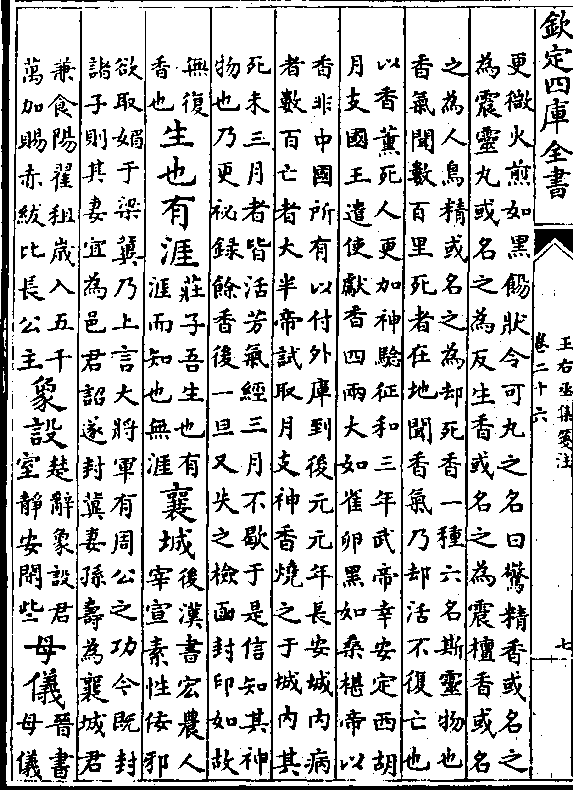 欽定四庫全書
王右丞集箋注
卷二十六
七
更微火煎如黑餳狀令可丸之名曰驚精香或名之
為震靈丸或名之為反生香或名之為震檀香或名
之為人鳥精或名之為却死香一種六名斯靈物也
香氣聞數百里死者在地聞香氣乃却活不復亡也
以香薰死人更加神驗征和三年武帝幸安定西胡
月支國王遣使獻香四兩大如雀卵黑如桑椹帝以
香非中國所有以付外庫到後元元年長安城內病
者數百亡者大半帝試取月支神香燒之于城內其
死未三月者皆活芳氣經三月不歇于是信知其神
物也乃更祕録餘香後一旦又失之檢函封印如故
無復
香也
生也有涯
莊子吾生也有
涯而知也無涯
襄城
後漢書宏農人
宰宣素性佞邪
欲取媚于梁冀乃上言大將軍有周公之功今既封
諸子則其妻宜為邑君詔遂封冀妻孫壽為襄城君
兼食陽翟租歲入五千
萬加賜赤紱比長公主
象設
楚辭象設君
室靜安閒些
母儀
晉書
母儀